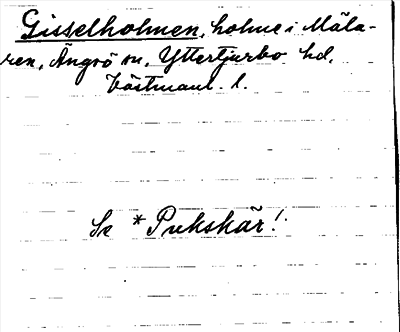 Gisselholmen, holme i Mäla-
ren, Ängsö sn, Yttertjurbo hd,
Västmanl. l.
Se *Pukskär!